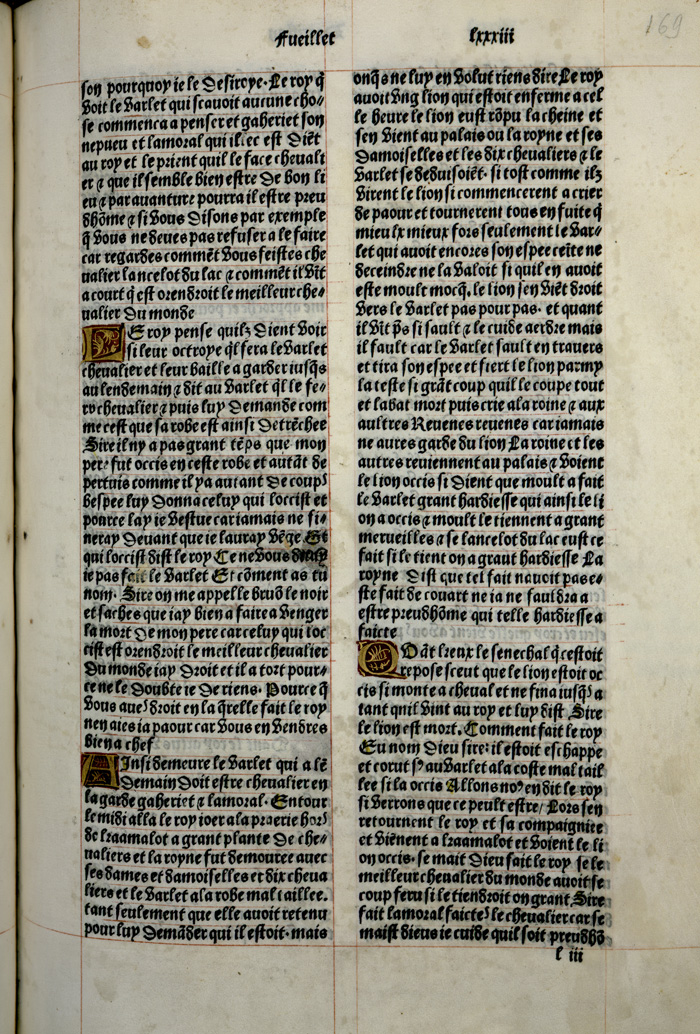 Fueillet lxxxiii
169
son pourquoy ie le desiroye. Le roy q̃
voit le varlet qui scauoit aucune cho⸗
se commenca a penser et gaheriet son
nepueu et lamoral qui illec est Diẽt
au roy et le prient quil le face cheuali
er ⁊ que il semble bien estre de bon li
eu ⁊ par auanture pourra il estre preu
dhõme ⁊ si vous disons par exemple
q̃ vous ne deues pas refuser a le faire
car regardes commẽt vous feistes che
ualier lancelot du lac ⁊ commẽt il vĩt
a court q̃ est orendroit le meilleur che⸗
ualier du monde
Le roy pense quilz dient voir
si leur octroye q̃l fera le varlet
cheualier et leur baille a garder iusq̃s
au lendemain ⁊ dit au varlet q̃l le fe⸗
ra cheualier ⁊ puis luy demande com
me cest que sa robe est ainsi detrẽchee
Sire il ny a pas grant tẽps que mon
pere fut occis en ceste robe et autãt de
pertuis comme il y a autant de coups
despee luy donna celuy qui loccist et
pource lay ie vestue car iamais ne fi⸗
neray deuant que ie lauray vẽge. Et
qui loccist dist le roy Ce ne vous diray
ie pas fait le varlet Et cõment as tu
nom. Sire on me appelle bruõ le noir
et saches que iay bien a faire a venger
la mort de mon pere car celuy qui loc
cist est orendroit le meilleur cheualier
du monde iay droit et il a tort pour⸗
ce ne le doubte ie de riens. Pource q̃
vous aues droit en la q̃relle fait le roy
nen aies ia paour car vous en vendres
bien a chef
Ainsi demeure le varlet qui a lẽ
demain doit estre cheualier en
la garde gaheriet ⁊ lamoral. Entour
le midi alla le roy ioer a la praerie hors
de kraamalot a grant plante de che⸗
ualiers et la royne fut demouree auec
ses dames et damoiselles et dix cheua
liers et le varlet a la robe mal taillee.
tant seulement que elle auoit retenu
pour luy demãder qui il estoit. mais
onq̃s ne luy en volut riens dire Le roy
auoit vng lion qui estoit enferme a cel
le heure le lion eust rõpu la cheine et
sen vient au palais ou la royne et ses
damoiselles et les dix cheualiers ⁊ le
varlet se deduisoiẽt. si tost comme ilz
virent le lion si commencerent a crier
de paour et tournerent tous en fuite q̃
mieulx mieux fors seulement le var⸗
let qui auoit encores son espee ceĩte ne
deceindre ne la valoit si quil en auoit
este moult mocq̃. le lion sen viẽt droit
vers le varlet pas pour pas. et quant
il vĩt p̃s si sault ⁊ le cuide aerdre mais
il fault car le varlet sault en trauers
et tira son espee et fiert le lion parmy
la teste si grãt coup quil le coupe tout
et labat mort puis crie a la roine ⁊ aux
aultres Reuenes reuenes car iamais
ne aures garde du lion La roine et les
autres reuiennent au palais ⁊ voient
le lion occis si dient que moult a fait
le varlet grant hardiesse qui ainsi le li
on a occis ⁊ moult le tiennent a grant
merueilles ⁊ se lancelot du lac eust ce
fait si le tient on a grant hardiesse La
royne dist que tel fait nauoit pas e⸗
ste fait de couart ne ia ne fauldra a
estre preudhõme qui telle hardiesse a
faicte
Quãt kreux le senechal q̃ cestoit
repose sceut que le lion estoit oc
cis si monte a cheual et ne fina iusq̃s a
tant quil vint au roy et luy dist Sire
le lion est mort. Comment fait le roy
Eu nom dieu sire: il estoit eschappe
et corut sꝰ au varlet a la coste mal tail
lee si la occis Allons noꝰ en dit le roy
si verrons que ce peult estre/ Lors sen
retournent le roy et sa compaignie
et viẽnent a kraamalot et voient le li
on occis. se mait dieu fait le roy se le
meilleur cheualier du monde auoit se
coup feru si le tiendroit on grant, Sire
fait lamoral faictes le cheualier car se
maist dieus ie cuide quil soit preudhõ
l iii